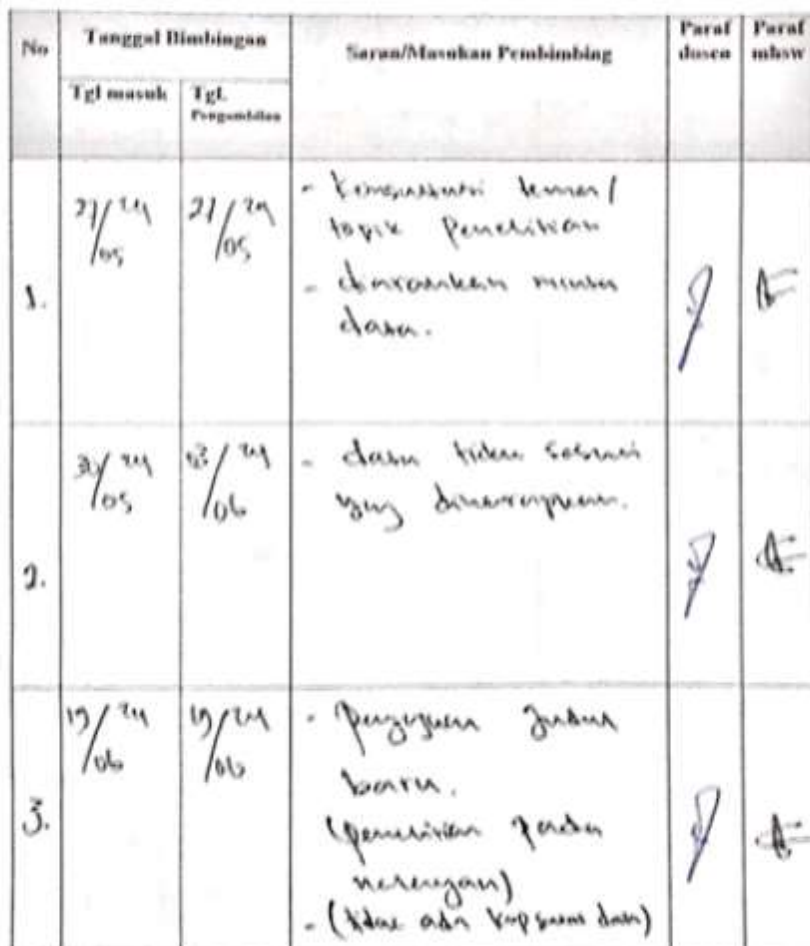 No
Tanggal Bimbingan
Saran/Masukan Pembimbing
Paraf dosen
Paraf mhsw
Tgl masuk
Tgl. Pengambilan
1.
27/24/05
27/24/05
- konsultasi tema/
topik Penelitian
- diarahkan minta
data.
2.
30/24/05
03/24/06
- data tidak sesuai
yang diharapkan.
3.
19/24/06
19/24/06
- Pengajuan Judul
baru.
(penelitian pada
- (tidak ada